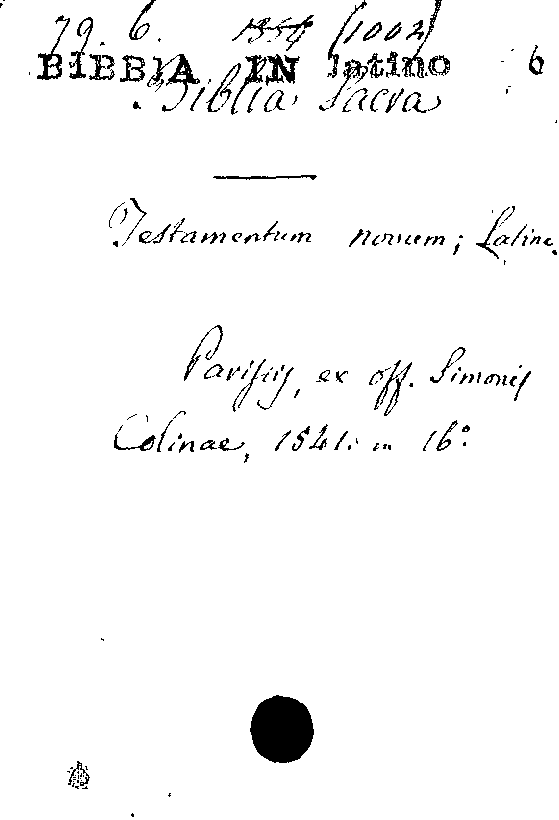 79. 6. 1354 (1002)
BIBBIA IN latino 6
Biblia Sacra
Testamentum novum; Latine.
Parisijs, ex off. Simonis
Colinae, 1541. in 16°.